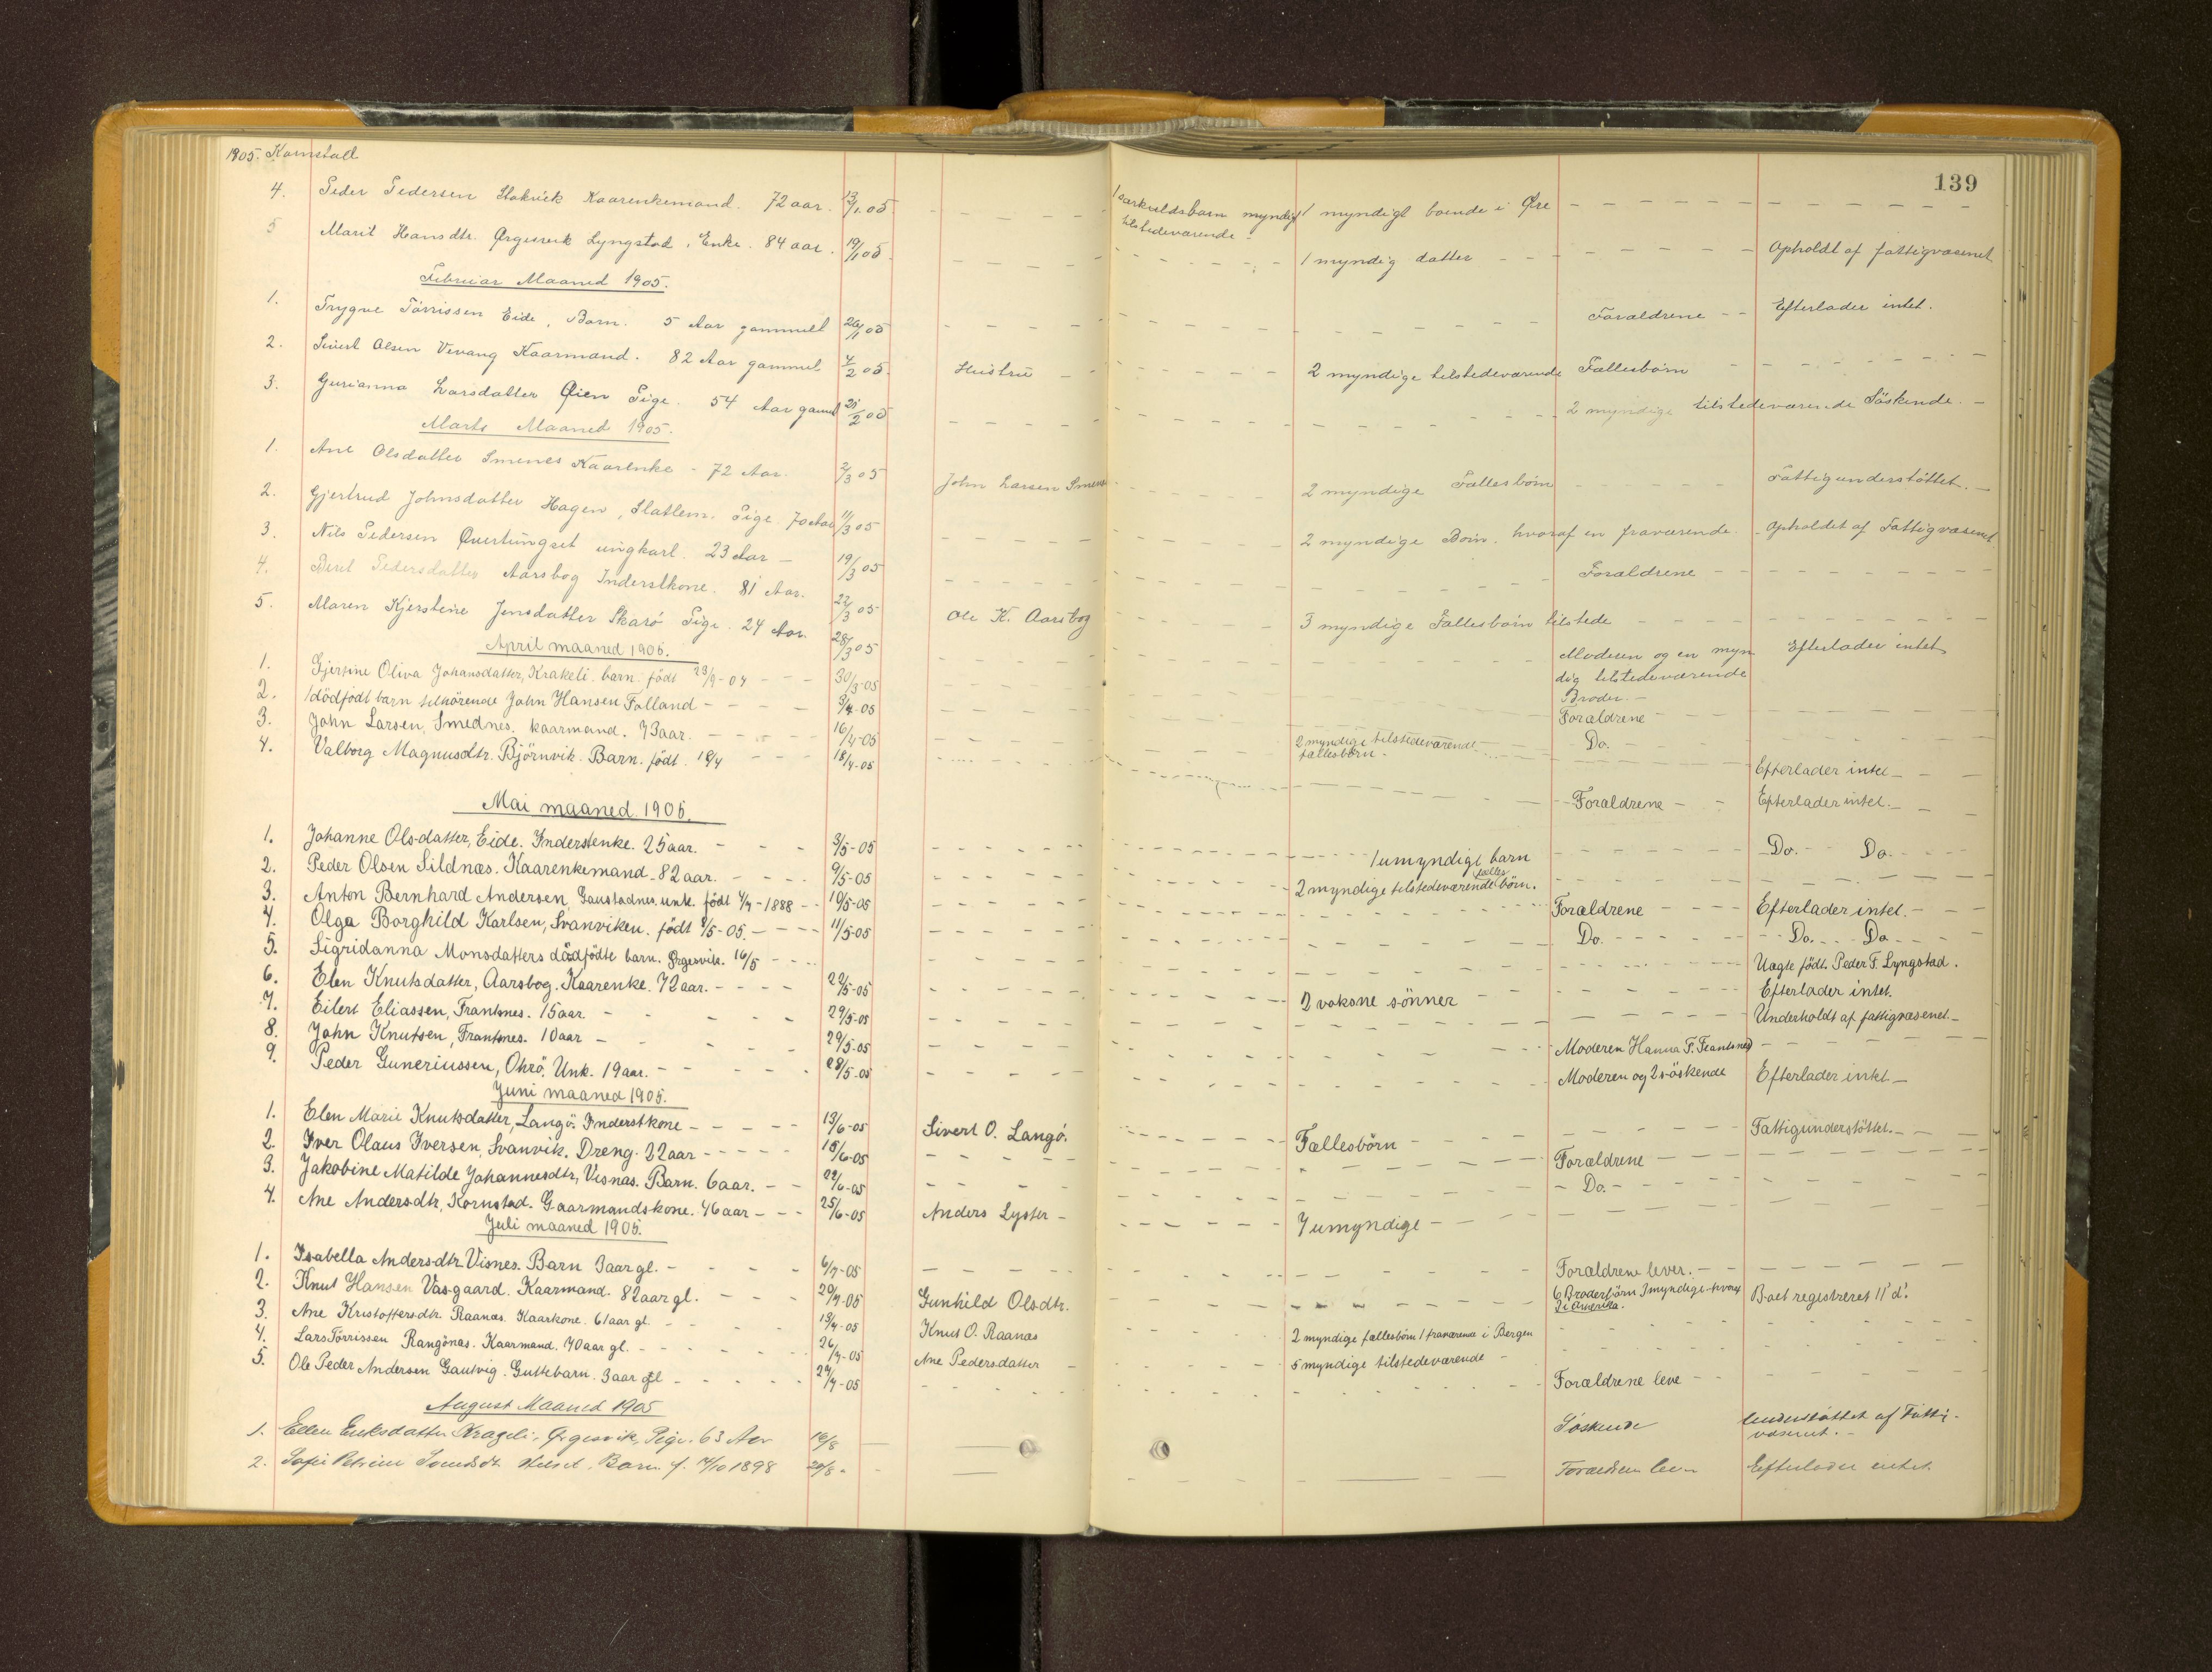 1905. Kornstad
139
4. Peder Pedersen Stokvik Kaarenkemand. 72 aar. 13/1.05 1 særkuldsbarn myndig tilstedeværende - 1 myndigt boende i Øre
5 Marit Hansdtr. Ørgesvik Lyngstad, Enke. 84 aar. 19/1 05 1 myndig datter Opholdt af fattigvæsenet
Februar Maaned 1905.
1. Trygve Tørrissen Eide, Barn. 5 Aar gammelt 26/1 05 Forældrene Efterlader intet.
2. Sivert Olsen Vevang Kaarmand. 82 Aar gammel 4/2 05. Hustru 2 myndige tilstedeværende Fællesbørn
3. Gurianna Larsdatter Øien Pige. 54 Aar gamel 21/2 05 2 myndige tilstedeværende Söskende.
Marts Maaned 1905.
1. Ane Olsdatter Smenes Kaarenke - 72 Aar. 2/3 05 John Larsen Smenes 2 myndige Fællesbörn Fattigunderstöttet.
2. Gjertrud Johnsdatter Hagen, Slatlem. Pige. 70 Aar 11/3 05 2 myndige Börn. hvoraf en fraværende. Opholdet af Fattigvæsenet.
3. Nils Pedersen Qvertungset ungkarl. 23 Aar - 19/3 05 Forældrene
4. Beret Pedersdatter Aarsbog Inderstkone. 81 Aar. 22/3 05 Ole K. Aarsbog 3 myndige Fællesbörn tilstede
5. Maren Kjerstine Jensdatter Skarö Pige. 24 Aar. 28/3 05 Moderen og en myndig tilstedeværende Broder. - Efterlader intet
April maaned 1905.
1. Gjertine Oliva Johansdatter, Krakeli. barn. födt 23/9-04 30/3-05 Forældrene
2. 1 dödfödt barn tilhörende John Hansen Folland 9/4-05 Do.
3. John Larsen, Smednes. kaarmand. 73 aar. 16/4-05 2 myndige tilstedeværende fællesbörn. Efterlader intet
4. Valborg Magnusdtr. Björnvik. Barn. födt. 18/4 18/4-05 Forældrene Efterlader intet.
Mai maaned 1905.
1. Johanne Olsdatter, Eide. Inderstenke. 25 aar. 3/5-05 1 umyndigt barn Do. Do.
2. Peder Olsen Sildnæs. Kaarenkemand. 82 aar. 9/5-05 2 myndige tilstedeværende fælles börn.
3. Anton Bernhard Andersen, Gaustadnes. unk. födt 4/7-1888 10/5-05 Forældrene Efterlader intet.
4. Olga Borghild Karlsen, Svanviken. födt 8/5-05. 11/5-05 Do. Do. Do
5. Sigridanna Monsdatters dödfödte barn. Ørgesvik. 16/5 Uægte födt. Peder F. Lyngstad.
6. Elen Knutsdatter, Aarsbog. Kaarenke. 72 aar. 22/5-05 2 voksne sönner Efterlader intet.
7. Eilert Eliassen, Frantsnes. 15 aar. 29/5-05 Underholdt af fattigvæsenet.
8. John Knutsen, Frantsnes. 10 aar 29/5-05 Moderen Hanna F. Frantsnes
9. Peder Guneriussen, Ohrö. Unk. 19 aar. 28/5-05 Moderen og 2 söskende Efterlader intet
Juni maaned 1905.
1. Elen Marie Knutsdatter, Langö. Inderstkone 13/6-05 Sivert O. Langö. Fællesbörn Fattigunderstöttet.
2. Iver Olaus Iversen, Svanvik. Dreng. 22 aar 15/6-05 Forældrene
3. Jakobine Matilde Johannesdtr, Visnæs. Barn. 6 aar. 22/6-05 Do.
4. Ane Andersdtr, Kornstad. Gaarmandskone. 46 aar 25/6-05 Anders Lyster 7 umyndige
Juli maaned 1905.
1. Isabella Andersdtr. Visnes. Barn 3 aar gl. 6/7-05 Forældrene lever.
2. Knut Hansen Vasgaard. Kaarmand. 82 aar gl. 20/7-05 Gunhild Olsdtr. 6 Broderbörn 3 myndige hvoraf 2 i Amerika. Boet registreret 11 d.
3. Ane Kristoffersdtr. Raanæs. Kaarkone. 61 aar gl. 19/7-05 Knut O. Raanæs 2 myndige fællesbörn 1 fraværende i Bergen
4. Lars Törrissen Rangönæs. Kaarmand. 70 aar gl. 26/7-05 Ane Pedersdatter 5 myndige tilstedeværende
5. Ole Peder Andersen Gautvig. Guttebarn. 3 aar gl 29/7-05 Forældrene leve
August Maaned 1905
1. Ellen Eriksdatter Krageli, Ørgesvik, Pige. 63 Aar 16/8 Söskende Understøttet af Fattigvæsenet.
2. Sofie Petrine Barn f. 14/10 1898 20/8 Forældrene leve Efterlader intet.